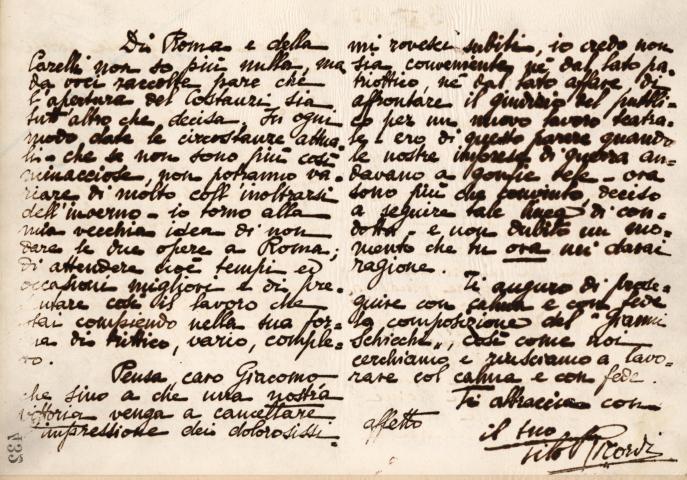 Di Roma e della
Carelli non so più nulla, ma
da voci raccolte pare che
l'apertura del Costanzi sia
tutt'altro che decisa. In ogni
modo date le circostanze attua-
li - che se non sono più così
minacciose, non potranno va-
riare di molto coll'inoltrarsi
dell'inverno - io torno alla
mia vecchia idea di non
dare le due opere a Roma;
di attendere cioè tempi ed
occasioni migliori e di pre-
sentare così il lavoro che
stai compiendo nella sua for-
ma di trittico, vario, comple-
to.
Pensa caro Giacomo
che sino a che una nostra
vittoria venga a cancellare
l'impressione dei dolorosissi-
mi rovesci subiti, io credo non
sia conveniente nè dal lato pa-
triottico, nè dal lato affare di
affrontare il giudizio del pubbli-
co per un nuovo lavoro teatra-
le - ero di questo parere quando
le nostre imprese di guerra an-
davano a gonfie vele - ora
sono più che convinto, deciso
a seguire tale linea di con-
dotta - e non dubito un mo-
mento che tu ora mi darai
ragione.
Ti auguro di prose-
guire con calma e con fede
la composizione del "Gianni
Schicchi", così come noi
cerchiamo e riusciamo a lavo-
rare col calma e con fede.
Ti abbraccio con
affetto
il tuo
Tito Ricordi
435